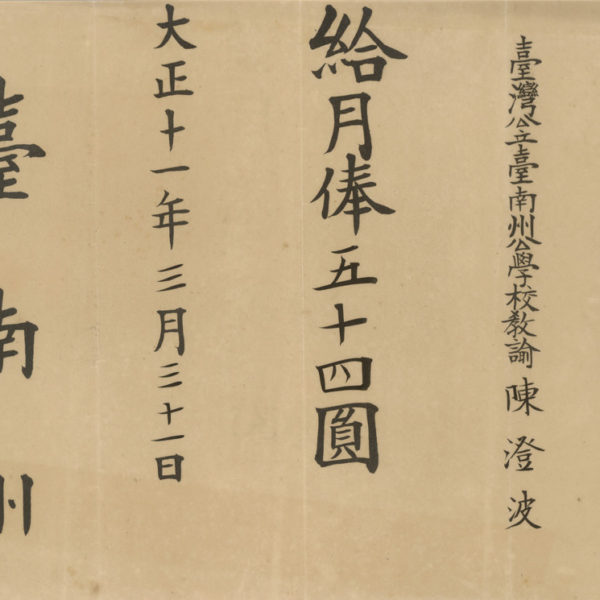 臺灣公立臺南州公學校教諭 陳澄波
給月俸五十四圓
大正十一年三月三十一日
臺南州